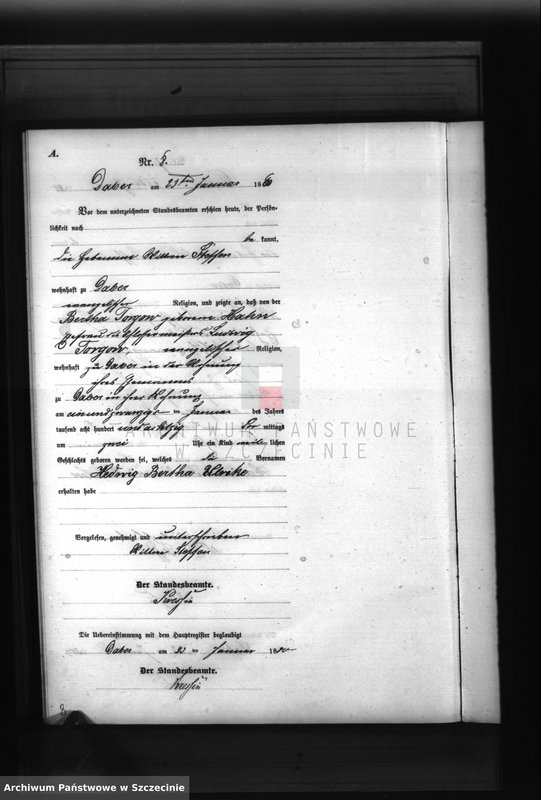 A.
Nr. 8.
Daber am 23ten Januar 1880
Vor dem unterzeichneten Standesbeamten erschien heute, der Persön-
lichkeit nach
be kannt,
die Hebamme Steffen
wohnhaft zu Daber
evangelischer Religion, und zeigte an, daß von der
Bertha Torgow geborene Hahn
Ehefrau des Ludwig
Torgow, evangelischer Religion,
wohnhaft zu Daber in der Wohnung
ihres Ehemannes
zu Daber in ihrer Wohnung
am einundzwanzigsten Januar des Jahres
tausend acht hundert und achtzig Vor mittags
um zwei Uhr ein Kind weib lichen
Geschlechts geboren worden sei, welches die Vornamen
Hedwig Bertha Ulrike
erhalten habe
Vorgelesen, genehmigt und unterschrieben
Steffen
Der Standesbeamte.
Die Uebereinstimmung mit dem Hauptregister beglaubigt
Daber am 23ten Januar 1880
Der Standesbeamte.
8
ARCHIWUM PAŃSTWOWE
W SZCZECINIE
Archiwum Państwowe w Szczecinie